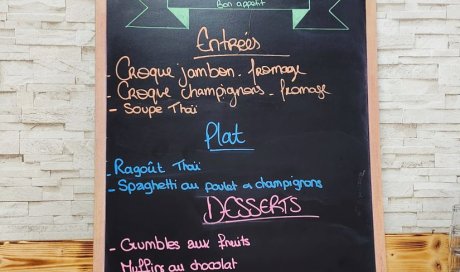 Bon appétit
Entrées
- Croque jambon - fromage
- Croque champignons - fromage
- Soupe Thaï
Plat
- Ragoût Thaï
- Spaghetti au poulet & champignons
DESSERTS
- Crumbles aux fruits
- Muffins au chocolat